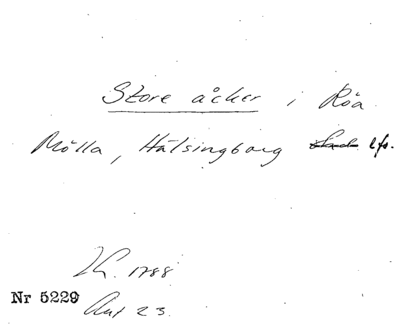 Store åcker i Röa
Mölla, Hälsingborg lfs.
Lh. 1788
Nr 5229
Aut 23.